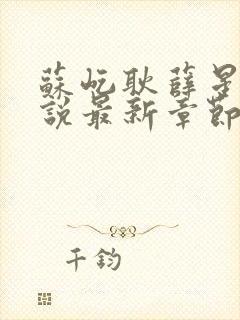 蘇屹耿薛星
說最新章節
千鈞